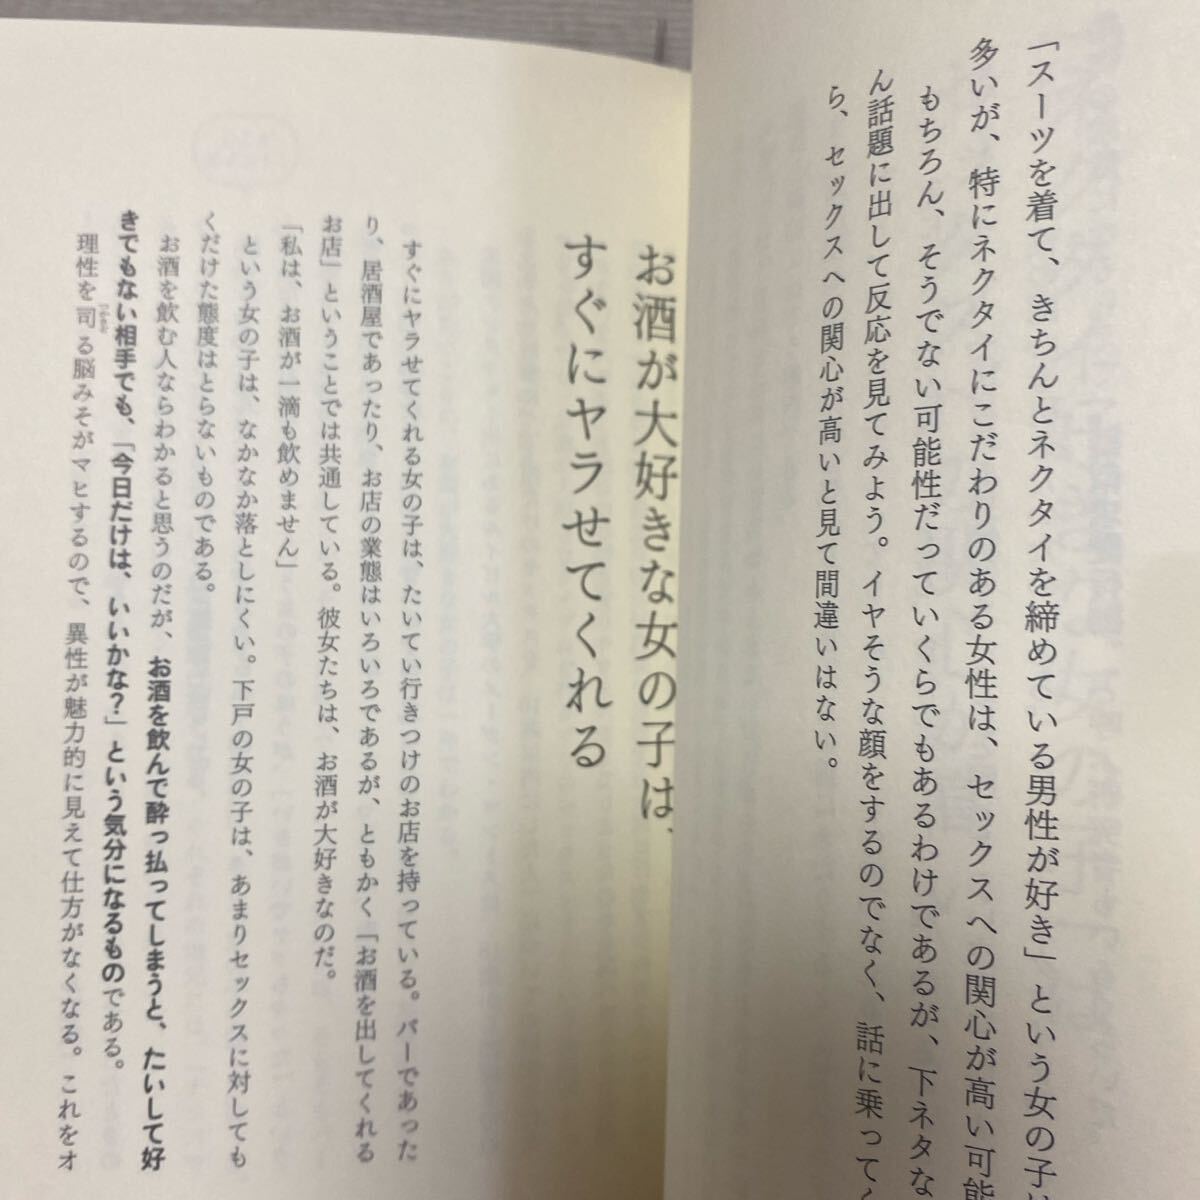 「スーツを着て、きちんとネクタイを締めている男性が好き」という女の子は
多いが、特にネクタイにこだわりのある女性は、セックスへの関心が高い可能
もちろん、そうでない可能性だっていくらでもあるわけであるが、下ネタな
ん話題に出して反応を見てみよう。イヤそうな顔をするのでなく、話に乗ってく
ら、セックスへの関心が高いと見て間違いはない。
お酒が大好きな女の子は、
すぐにヤラせてくれる
すぐにヤラせてくれる女の子は、たいてい行きつけのお店を持っている。バーであった
り、居酒屋であったり、お店の業態はいろいろであるが、ともかく「お酒を出してくれる
お店」ということでは共通している。彼女たちは、お酒が大好きなのだ。
「私は、お酒が一滴も飲めません」
という女の子は、なかなか落としにくい。下戸の女の子は、あまりセックスに対しても
くだけた態度はとらないものである。
お酒を飲む人ならわかると思うのだが、お酒を飲んで酔っ払ってしまうと、たいして好
きでもない相手でも、「今日だけは、いいかな?」という気分になるものである。
理性を司る脳みそがマヒするので、異性が魅力的に見えて仕方がなくなる。これをオ